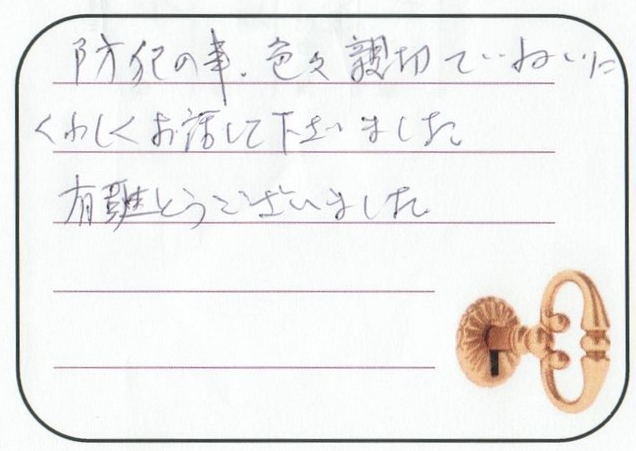 防犯の事、色々親切ていねいに
くわしくお話して下さいました
有難とうございました